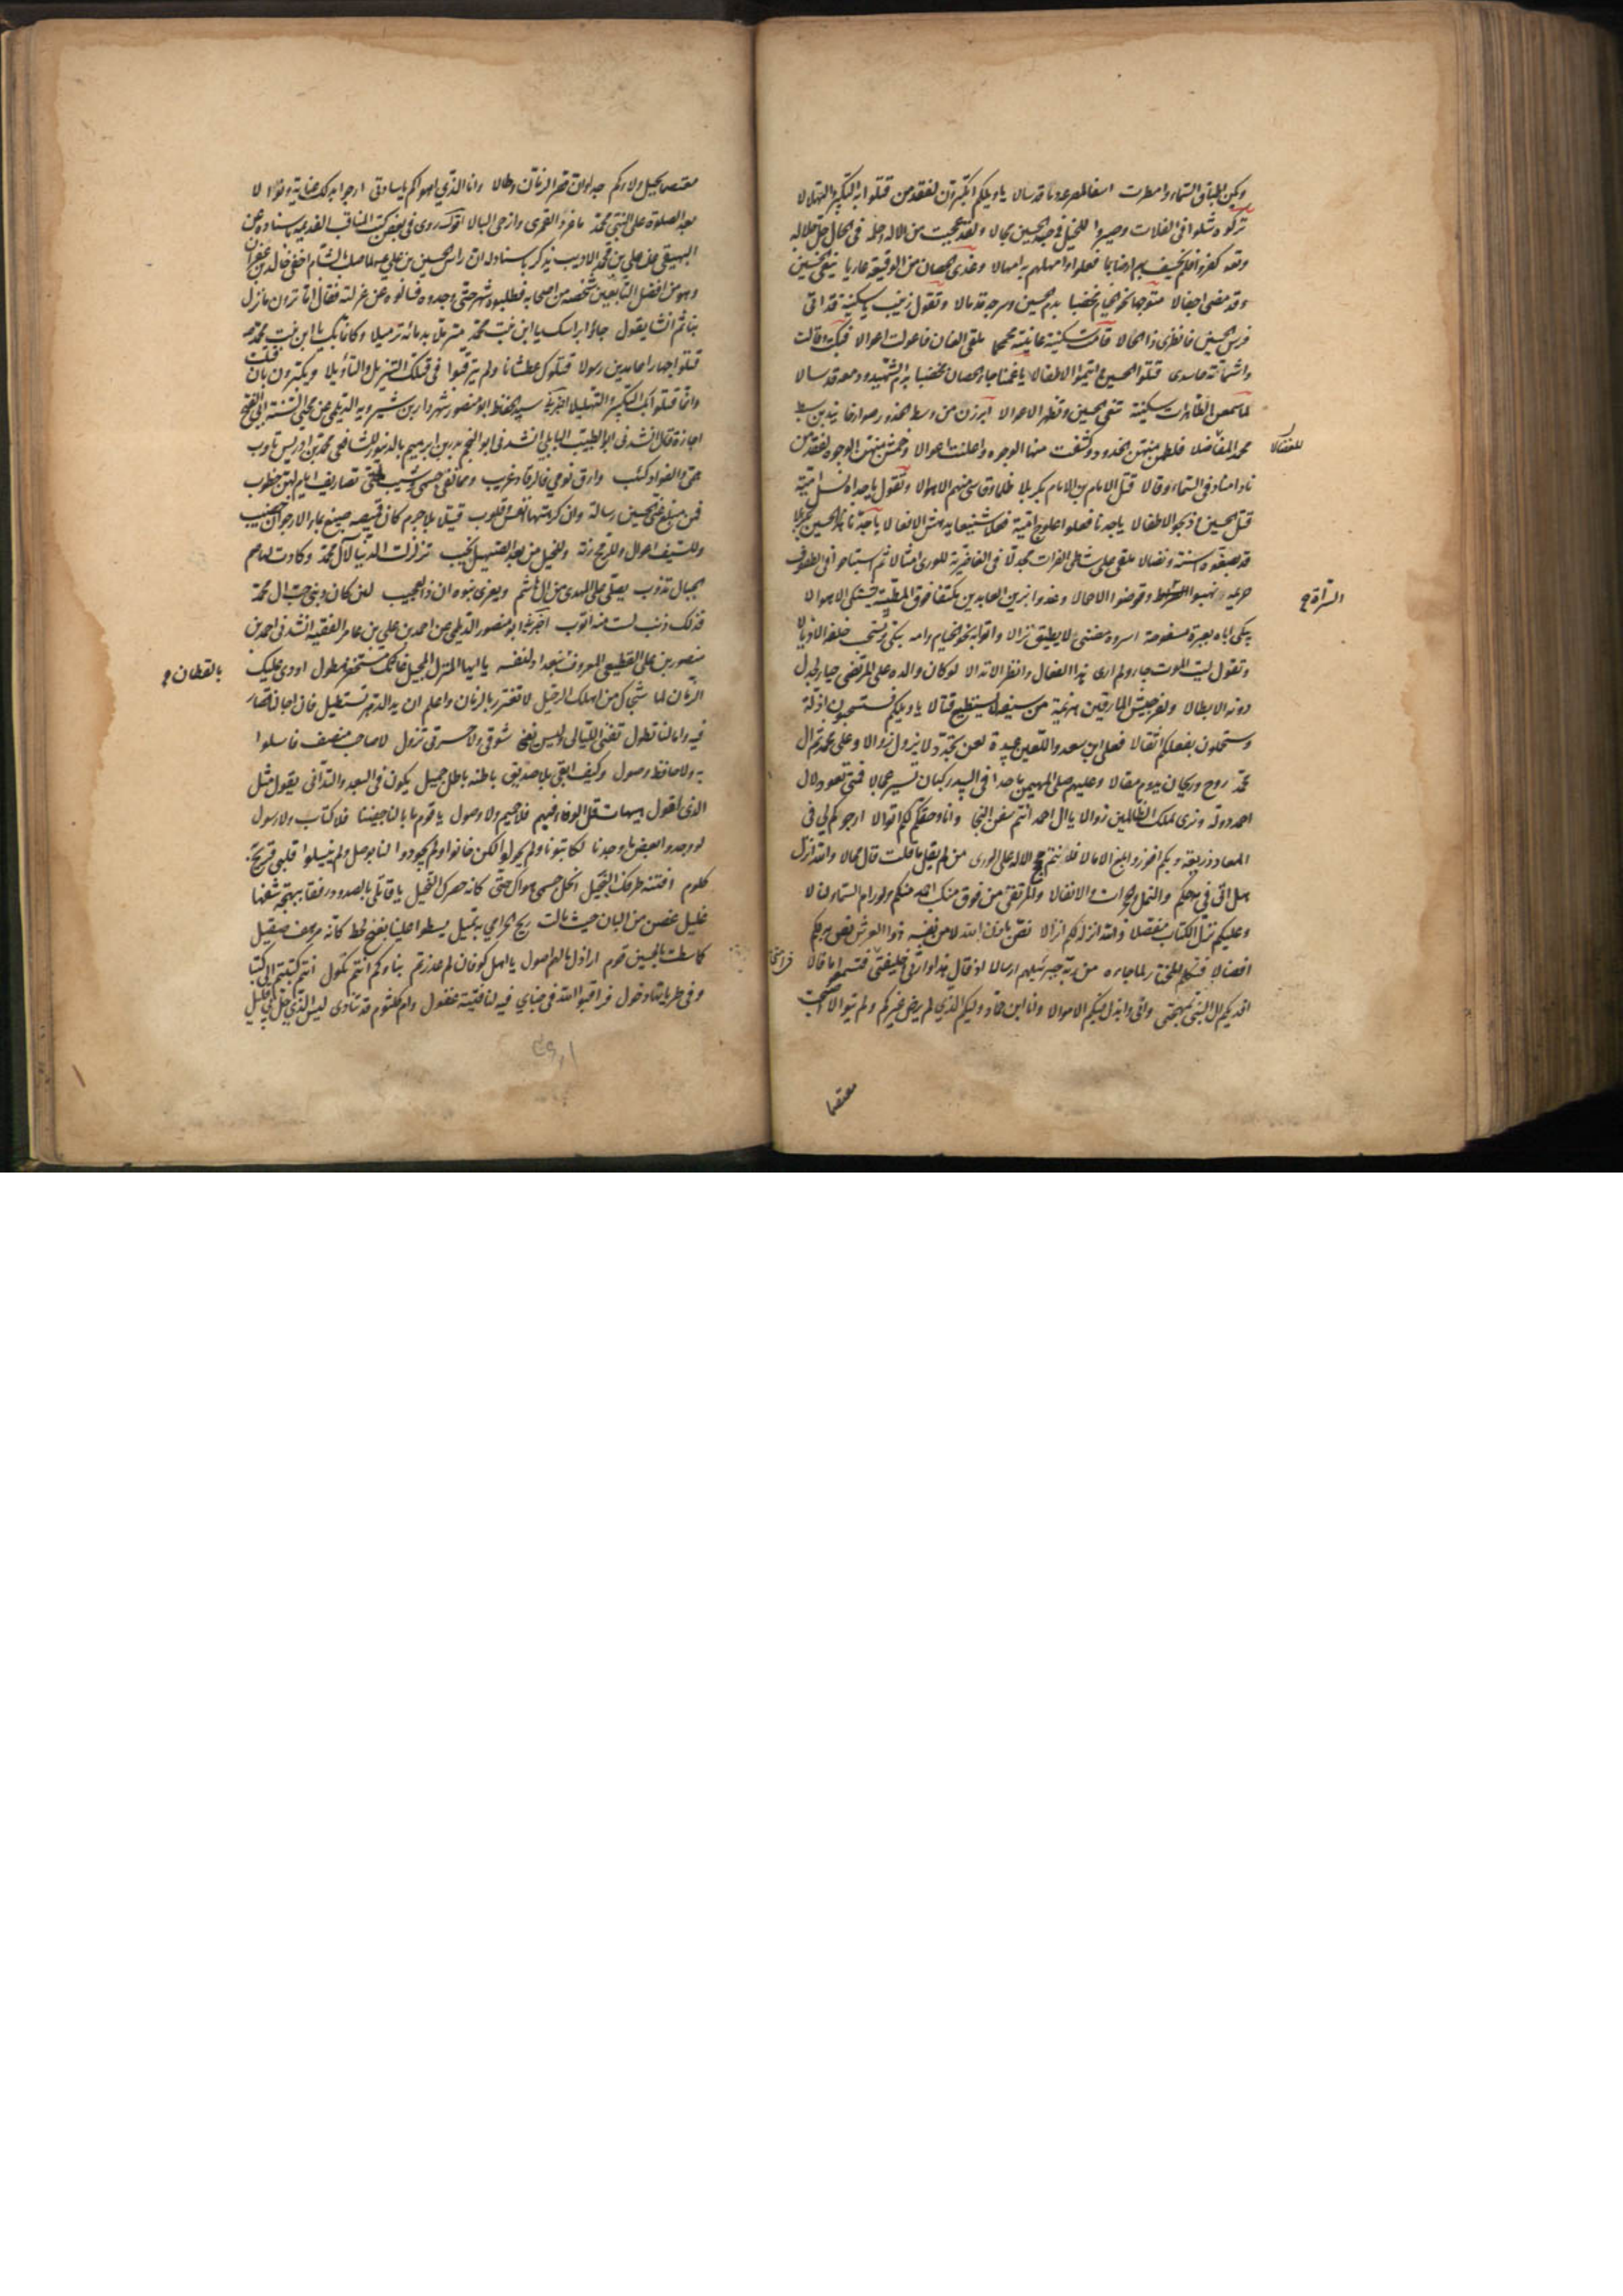 وبكين اطباق السماء وامطرت اسفا لمصرعه دما قد سالا يا ويلكم اتكبرون لفقد من قتلوا به التكبير والتهليلا
تركوه شلوا في الفلات وصيروا للخيل في جسد الحسين مجالا ولقد عجبت من الاله وحلمه في الحال جل جلاله
كفروا فلم يخسف بهم ارضا بما فعلوا وامهلهم به امهالا وغدى الحصان من الوقيعة عاريا ينعى الحسين
وقد مضى اجفالا متوجها نحو الخيام مخضبا بدم الحسين وسرجه قد مالا وتقول زينب يا سكينة قد اتى
فرس الحسين فانظرى ذا الحالا قامت سكينة عاينته محمحما ملقى العنان فاعولت اعوالا فبكت وقالت
واشماتة حاسدى قتلوا الحسين وايتموا الاطفالا يا عمتا جاء الحصان مخضبا بدم الشهيد ودمعه قد سالا
لما سمعن الطاهرات سكينة تنعى الحسين وتظهر الاعوالا ابرزن من وسط الخدور صوارخا يندبن سبط
محمد المفضالا فلطمن منهن الخدود وكشفت منها الوجوه واعلنت اعوالا وخمشن منهن الوجوه لفقد من
نادا مناد في السماء وقالا قتل الامام بن الامام بكربلا ظلما وقاسى منهم الاهوالا وتقول يا جداه نسل امية
قتل الحسين وذبحوا الاطفالا يا جدنا فعلوا علوج امية فعلا شنيعا يدهش الافعالا يا جدنا هذا الحسين بكربلا
قد بضعوه اسنة ونصالا ملقى على شاطى الفرات مجدلا في الغاضرية للورى امثالا ثم استباحوا في الطفوف
حريمه نهبوا وقوضوا الاحمالا وغدوا بزين العابدين مكتفا فوق المطية يشتكى الاهوالا
يبكى اباه بعبرة مسفوحة اسروه مضنى لا يطيق نزالا واتوا به نحو الخيام وامه تبكى وتسحب خلفه الاذيالا
وتقول ليت الموت جاء ولم ارى هذا الفعال وانظر الانذالا لو كان والده على المرتضى حيا لجدل
دونه الابطالا ولفر جيش المارقين هزيمة من سيفه لا يستطيع قتالا يا ويلكم فستسحبون اذلة
وستحملون بفعلكم اثقالا فعلى ابن سعد واللعين عبيدة لعن تجدد لا يزول زوالا وعلى محمد ثم ال
محمد روح وريحان يدوم مقالا وعليهم صلى المهيمن ما حدا في البيد ركبان تسير عجالا فمتى تعود لال
احمد دولة ونرى لملك الظالمين زوالا يا ال احمد انتم سفن النجا وانا وحقكم لكم اتوالا ارجوكم لي في
المعاد ذريعة وبكم افوز وابلغ الامالا فلانتم حجج الاله على الورى من لم يقل ما قلت قال محالا والله انزل
هل اتى في مدحكم والنمل والحجرات والانفالا والمرتقى من فوق منكب احمد منكم ولو رام السماء لنالا
وعليكم نزل الكتاب مفصلا والله انزله لكم انزالا نص باذن الله لا من نفسه ذو العرش نص به لكم
افضالا فتكلم المختار لما جاءه من ربه جبريلهم ارسالا اذ قال هذا وارثي وخليفتي فتسمعوا ما قالا
افديكم ال النبي بمهجتى وابى وابذل فيكم الاموالا وانا ابن حماد وليكم الذي لم يرض غيركم ولم يتوالا اصبحت
للفضالا
السراة
فرامنا
معتصما
معتصما بحبل ولائكم جدا وان قصر الزمان وطالا وانا الذي اهواكم يا سادتى ارجوا بذاك عناية ونوالا
بعد الصلوة على النبي محمد ما غرد القمرى وارخى البالا اقول روى في بعض كتب المناقب القديمه باسناده عن
البيهقى عن على بن محمد الاديب يذكر باسناد له ان راس الحسين بن علي ع لما صلب بالشام اخفى خالد بن غفران
وهو من افضل التابعين شخصه من اصحابه فطلبوه شهرا حتى وجدوه فسالوه عن عزلته فقال اما ترون ما نزل
بنا ثم انشا يقول جاؤا براسك يا ابن بنت محمد مترملا بدمائه ترميلا وكانما بك يا ابن بنت محمد
قتلوا جهارا عامدين رسولا قتلوك عطشانا ولم يترقبوا في قتلك التنزيل والتأويلا ويكبرون بان قتلت
وانما قتلوا بك التكبير والتهليلا اخبرنا سيد الحفاظ ابو منصور شهردار بن شيرويه الديلمى عن محيى السنة ابي الفتح
اجازة قال انشدنى ابو الطيب البابلى انشدنى ابو النجم بدر بن ابرهيم بالدينور للشافعى محمد بن ادريس تاوب
همى والفواد كئيب وارق نومي فالرقاد غريب ومما نفى جسمى وشيب لمتى تصاريف ايام لهن خطوب
فمن مبلغ عنى الحسين رسالة وان كرهتها انفس وقلوب قتيلا بلا جرم كان قميصه صبيغ بماء الارجوان خضيب
وللسيف اعوال وللرمح رنة وللخيل من بعد الصهيل نحيب تزلزلت الدنيا لال محمد وكادت لهم صم
الجبال تذوب يصلى على المهدى من ال هاشم ويغزى بنوه ان ذا لعجيب لئن كان ذنبى حب ال محمد
فذلك ذنب لست منه اتوب اخبرنا ابو منصور الديلمى عن احمد بن على بن عامر الفقيه انشدنى احمد بن
منصور بن على القطيعى المعروف ببغداد لنفسه يا ايها المنزل المحيل غاثك مستحفز هطول اودى عليك
الزمان لما شجاك من اهلك الرحيل لا تغترر بالزمان واعلم ان يد الدهر تستطيل فان اجالنا قصار
فيه وامالنا تطول تفنى الليالى وليس يفنى شوقى ولا حسرتى تزول لا صاحب منصف فاسلوا
به ولا حافظ وصول وكيف ابقى بلا صديق باطنه باطن جميل يكون في البعد والتدانى يقول مثل
الذى اقول هيهات قل الوفاء فيهم فلا حميم ولا وصول يا قوم ما بالنا جفينا فلا كتاب ولا رسول
لو وجدوا بعض ما وجدنا لكاتبونا ولم يحولوا لكن خانوا ولم يجودوا لنا بوصل ولم ينيلوا قلبى قريح به
كلوم افتنه طرفك البخيل انحل جسمى هواك حتى كانه خصرك النحيل يا قاتلى بالصدود رفقا بمهجة شفها
غليل غصن من البان حيث مالت ريح الخزامى به تميل يسطوا علينا بغنج لحظ كانه مرهف صقيل
كما سطت بالحسين قوم اراذل ما لهم اصول يا اهل كوفان لم غدرتم بنا وكم انتم نكول انتم كتبتم الى كتبا
وفى طوياتها دخول فراقبوا الله في خباي فيه لنا فتية غفول وام كلثوم قد تنادى ليس الذي حل بي قليل
بالقطان